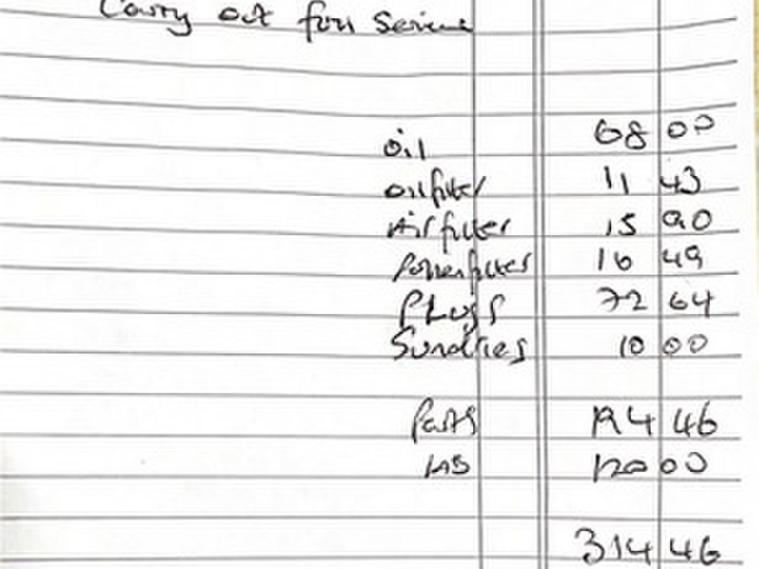 Carry out full Service
Oil 68 00
Oil filter 11 43
Air filter 15 90
Pollen filter 16 49
PLugs 72 64
Sundries 10 00
Parts 194 46
LAB 120 00
314 46